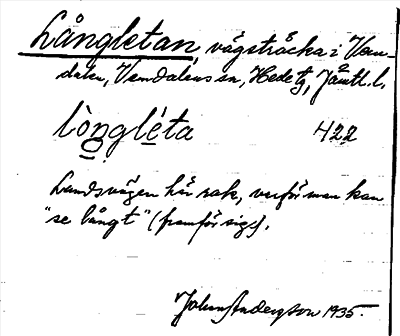 Långletan, vägsträcka i Vem-
dalen, Vemdalens sn, Hede tg, Jämtl. l.
lòngléta 422
Landsvägen här rak, varför man kan
"se långt" (framför sig).
John Anderzson 1935.